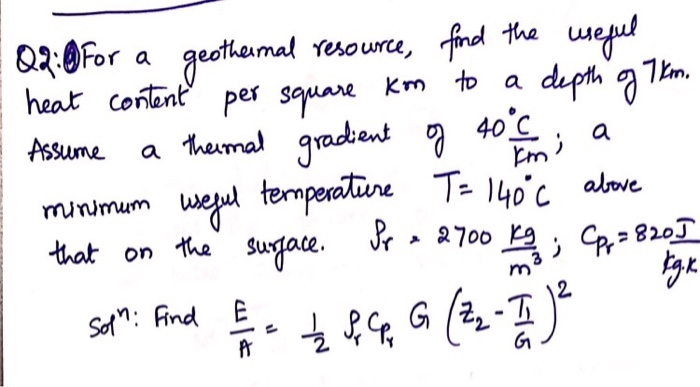 Q2: For a geothermal resource, find the useful
heat content per square Km to a depth of 7 Km.
Assume a thermal gradient of 40°C/Km; a
minimum useful temperature T = 140°C above
that on the surface. ρr = 2700 kg/m³; Cpr = 820 J/kg.K
Solⁿ: Find E/A = 1/2 ρr Cpr G (Z₂ - T₁/G)²